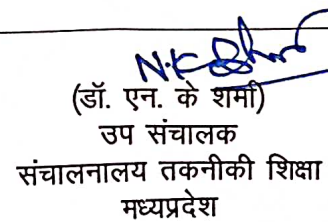 (डॉ. एन. के शर्मा)
उप संचालक
संचालनालय तकनीकी शिक्षा
मध्यप्रदेश